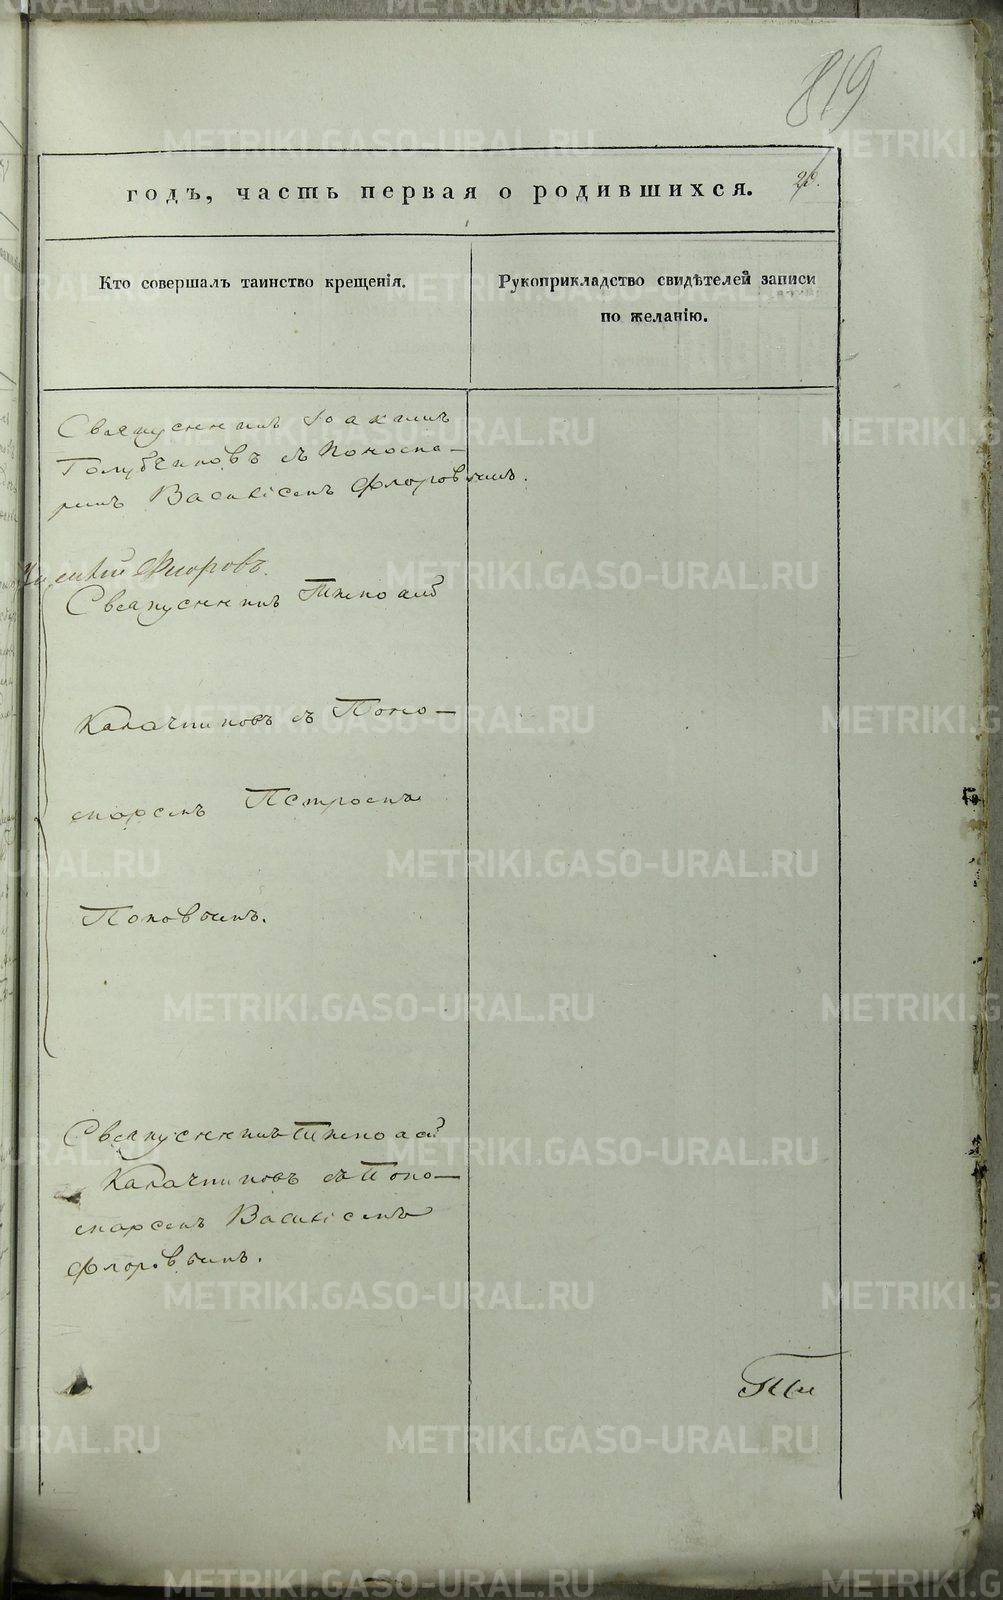 819
годъ, часть первая о родившихся.
Кто совершалъ таинство крещенія.
Рукоприкладство свидѣтелей записи
по желанію.
Священникъ Іоакимъ
Голубчиковъ съ Поно­ма-
ремъ Василіемъ Флоровымъ.
Флоровъ.
Священникъ Тимоѳей
Калачниковъ съ Поно-
маремъ Петромъ
Поповымъ.
Священникъ Тимоѳей
Калачниковъ съ Поно-
маремъ Василіемъ
Флоровымъ.
METRIKI.GASO-URAL.RU